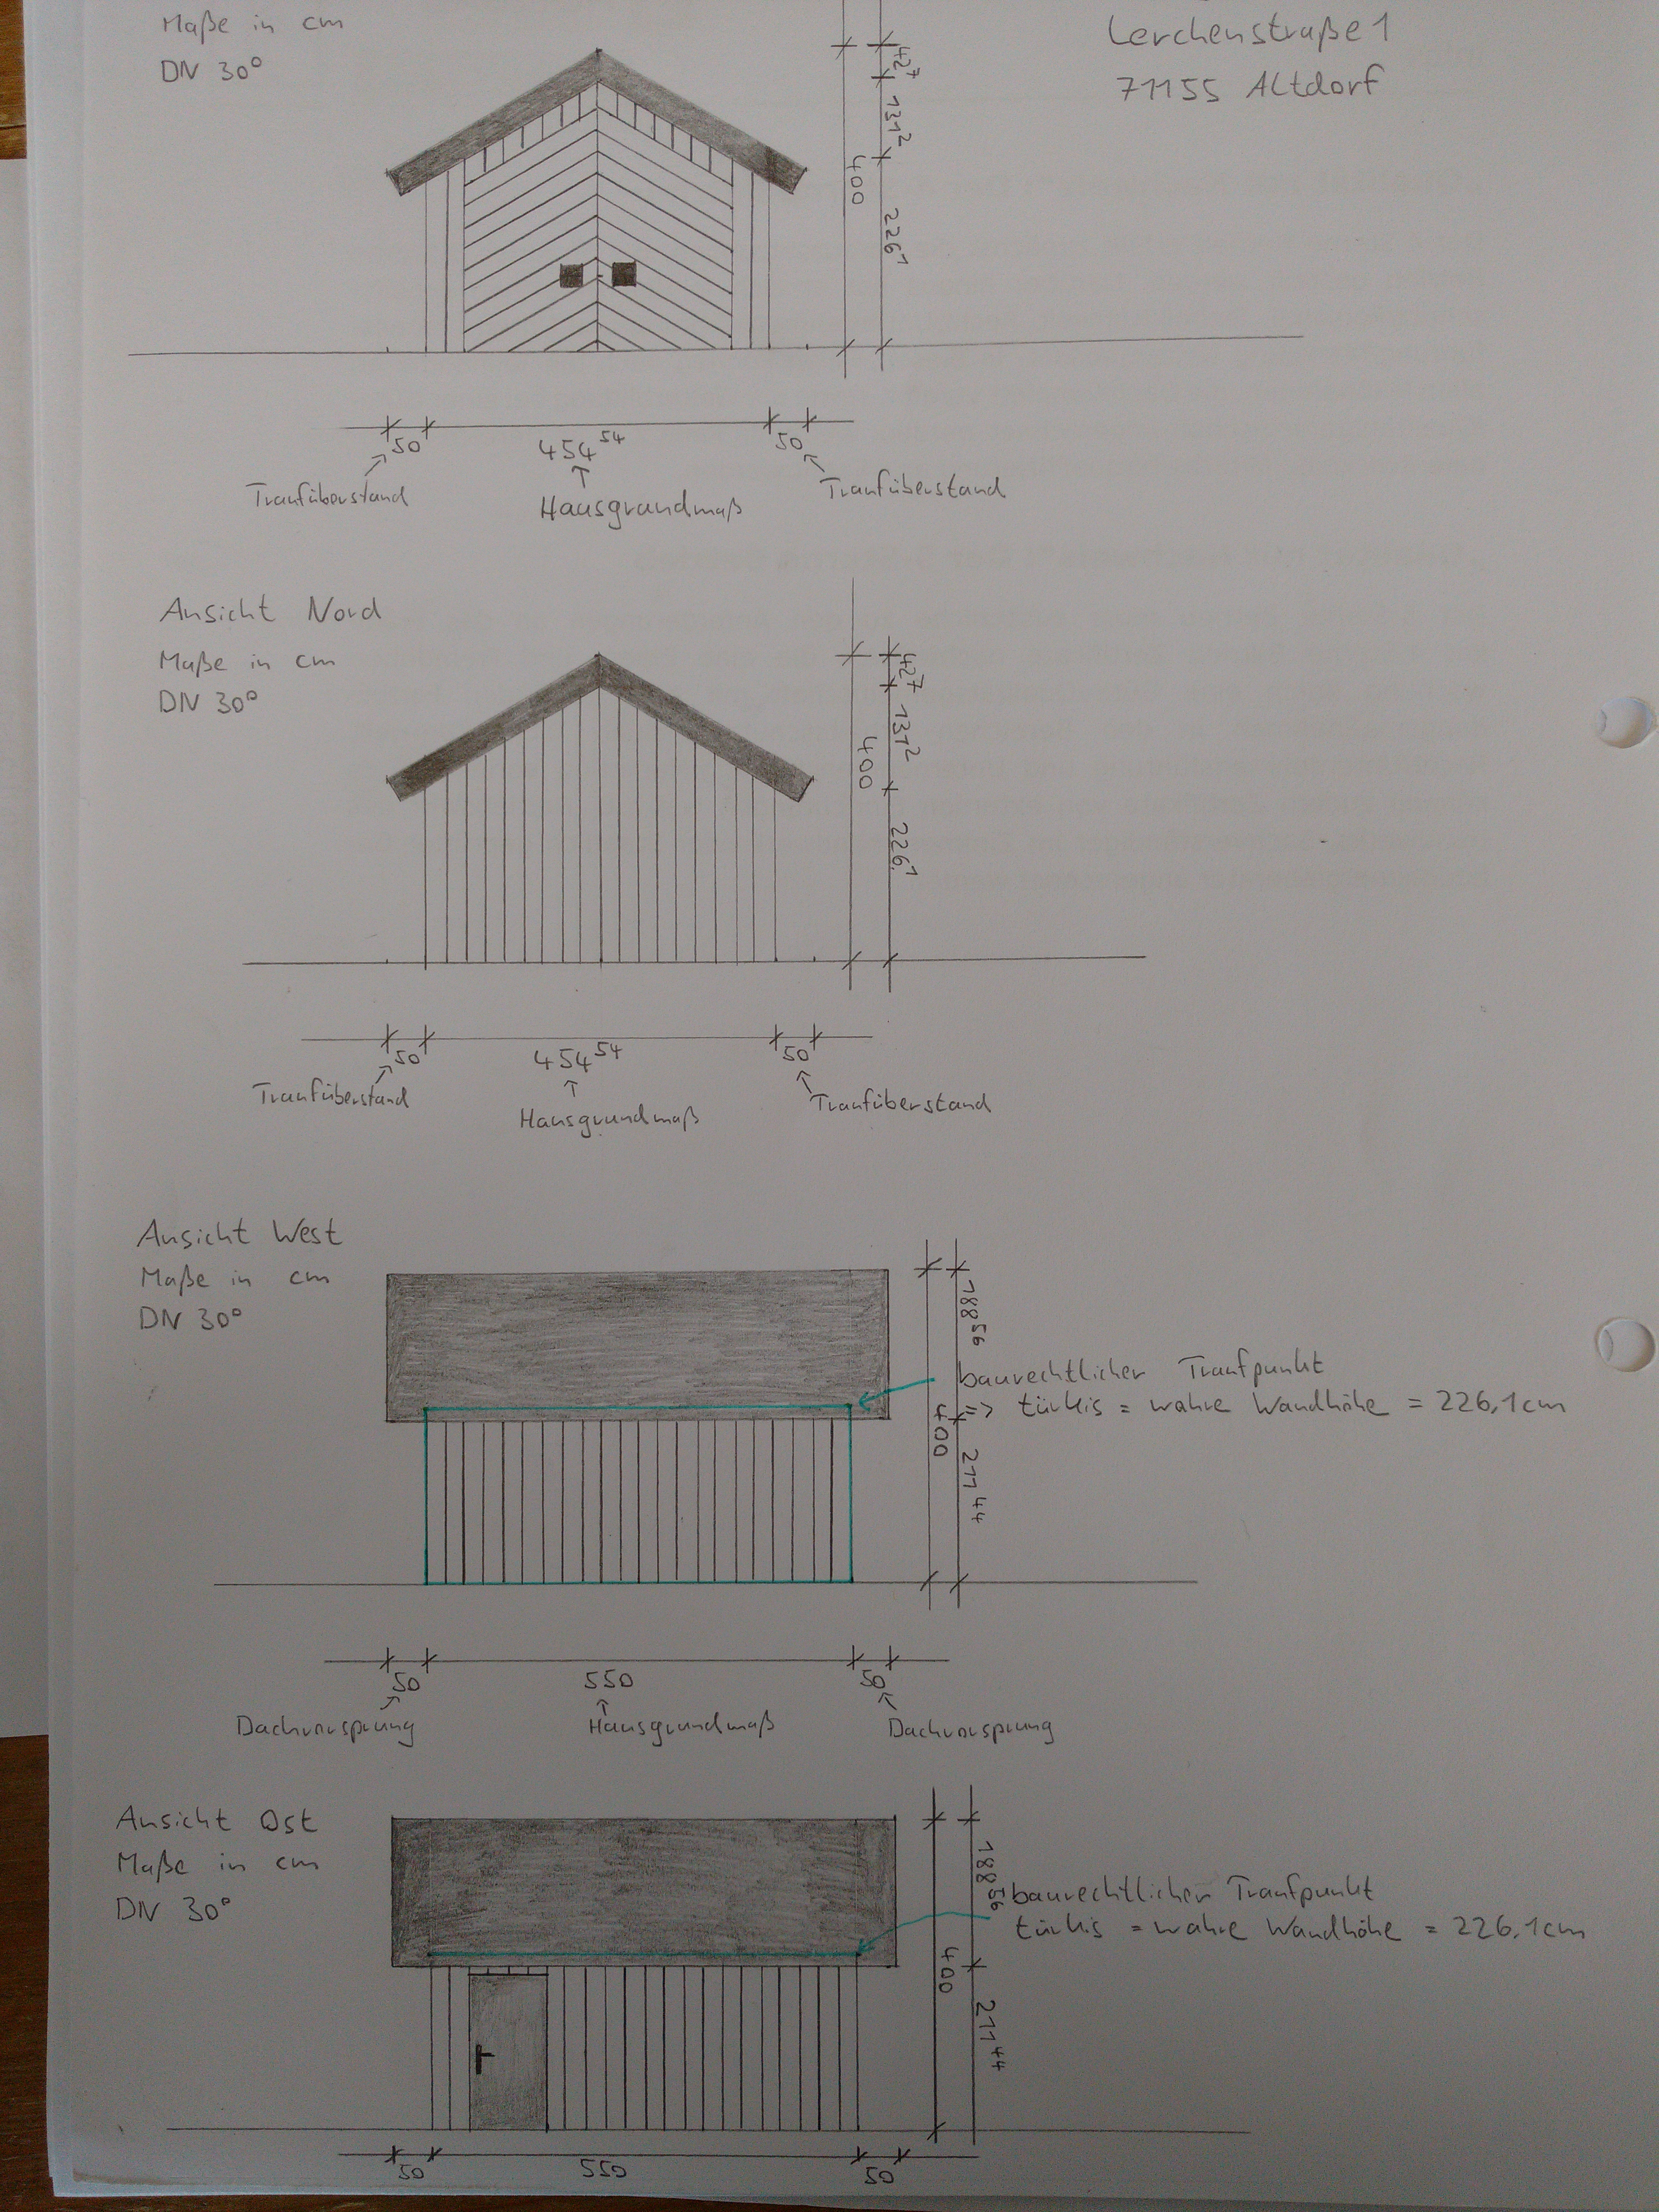 Maße in cm
DN 30°
Lerchenstraße 1
71155 Altdorf
42⁷
131²
400
226¹
50
454⁵⁴
50
Traufüberstand
Hausgrundmaß
Traufüberstand
Ansicht Nord
Maße in cm
DN 30°
42⁷
131²
400
226¹
50
454⁵⁴
50
Traufüberstand
Hausgrundmaß
Traufüberstand
Ansicht West
Maße in cm
DN 30°
188⁵⁶
baurechtlicher Traufpunkt
=> türkis = wahre Wandhöhe = 226,1cm
400
211⁴⁴
50
550
50
Dachvorsprung
Hausgrundmaß
Dachvorsprung
Ansicht Ost
Maße in cm
DN 30°
188⁵⁶
baurechtlicher Traufpunkt
türkis = wahre Wandhöhe = 226,1cm
400
211⁴⁴
50
550
50